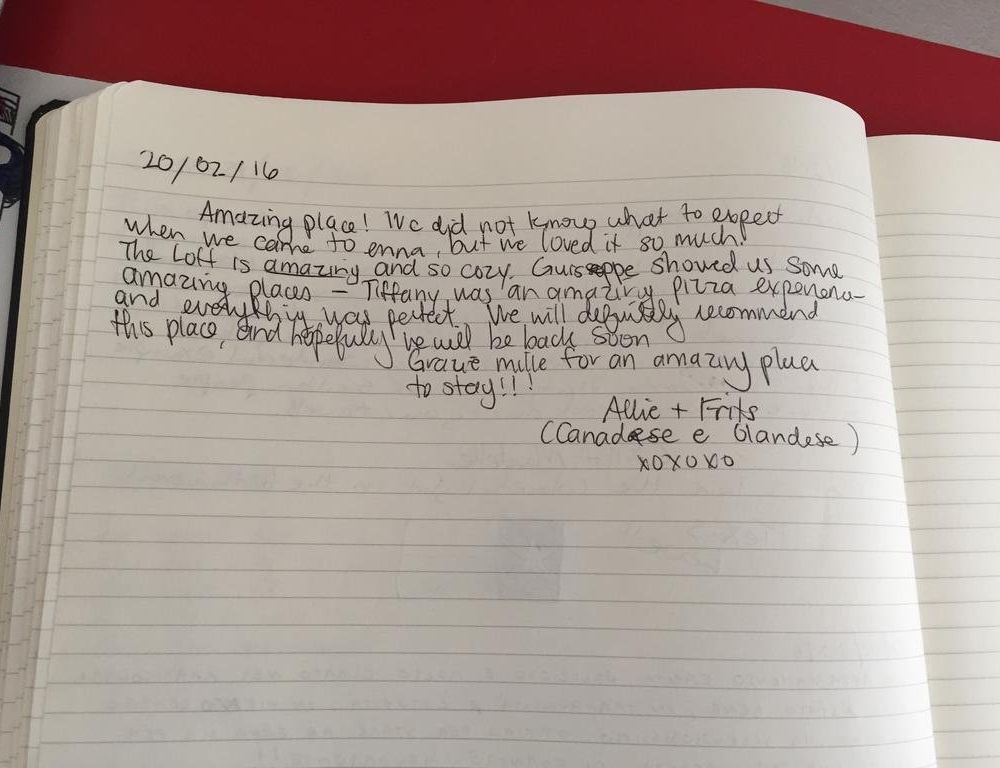 20/02/16
Amazing place! We did not know what to expect
when we came to enna, but we loved it so much!
The Loft is amazing and so cozy. Guisseppe showed us some
amazing places – Tiffany was an amazing pizza experience
and everything was perfect. We will definitely recommend
this place, and hopefully we will be back soon
Grazie mille for an amazing place
to stay!!!
Allie + Frits
(Canadese e Olandese)
xoxoxo